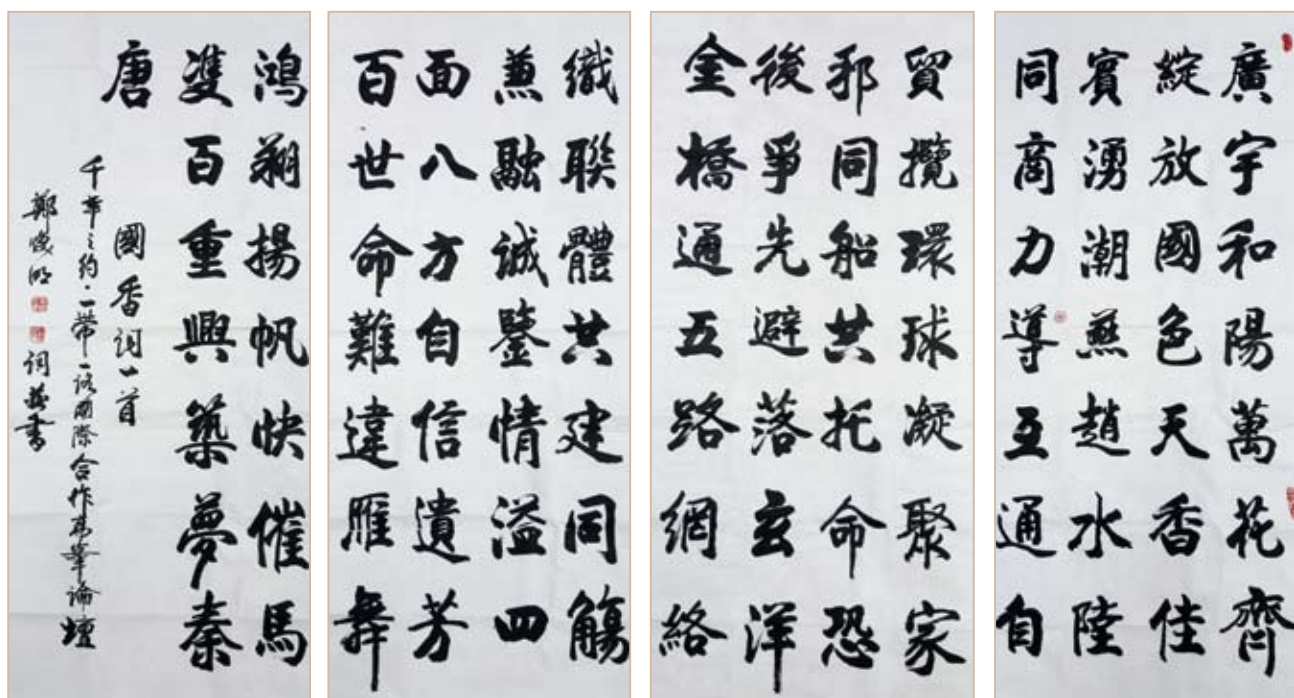 廣宇和陽萬花齊
綻放國色天香佳
賓湧潮燕趙水陸
同商力導互通自
貿攬環球凝聚家
邦同船共托命恐
後爭先避落玄洋
金橋通五路網絡
織聯體共建同觴
兼融誠鑒情溢四
面八方自信遺芳
百世命難違雁舞
鴻翔揚帆快催馬
雙百重興築夢秦
唐
國香詞一首
千年之約·一帶一路國際合作高峯論壇
鄭 詞並書